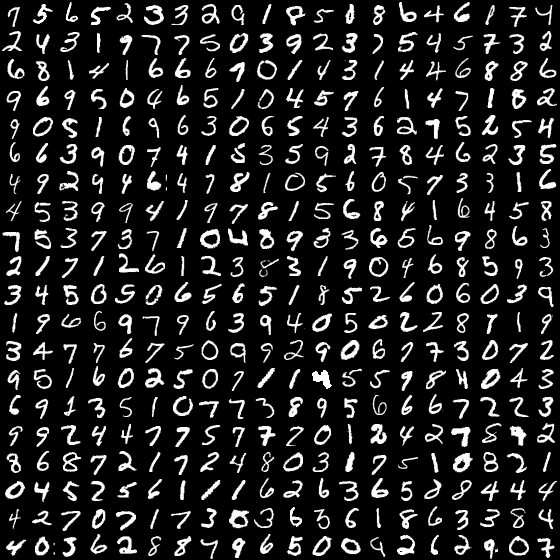 7 5 6 5 2 3 3 2 9 1 8 5 1 8 6 4 6 1 7 4
2 4 3 1 9 7 7 5 0 3 9 2 3 7 5 4 5 7 3 2
6 8 1 4 1 6 6 6 7 0 1 4 3 1 4 4 6 8 8 6
9 6 9 5 0 4 6 5 1 0 4 5 7 6 1 4 7 1 8 2
9 0 5 1 6 9 6 3 0 6 5 4 3 6 2 7 5 2 5 4
6 6 3 9 0 7 4 1 5 3 5 9 2 7 8 4 6 2 3 5
4 9 2 9 4 6 4 7 8 1 0 5 6 0 5 7 3 3 1 6
4 5 3 9 9 4 1 9 7 8 1 5 6 8 4 1 6 4 5 8
7 5 3 7 3 7 1 0 4 8 9 3 3 6 5 6 9 8 6 3
2 1 7 1 2 6 1 2 3 8 3 1 9 0 4 6 8 5 9 3
3 4 5 0 5 0 6 5 6 5 1 8 5 2 6 0 6 0 3 9
1 9 6 6 9 7 9 6 3 9 4 0 5 0 2 2 8 7 1 9
3 4 7 7 6 7 5 0 9 9 2 9 0 6 7 7 3 0 7 2
9 5 1 6 0 2 5 0 7 1 1 5 5 9 8 4 0 4 3
6 9 1 3 5 1 0 7 7 3 8 9 5 6 6 6 7 2 2 3
9 9 2 4 4 7 7 5 7 7 7 0 1 2 4 2 7 8 9 2
8 6 8 7 2 1 7 2 4 8 0 3 1 7 5 1 0 8 2 1
0 4 5 2 5 6 1 1 1 6 2 6 3 6 5 8 8 4 4 4
4 2 7 0 7 1 7 3 0 3 6 3 6 1 8 6 3 3 8 4
4 0 5 6 2 8 8 7 9 6 5 0 0 9 2 6 2 9 0 3